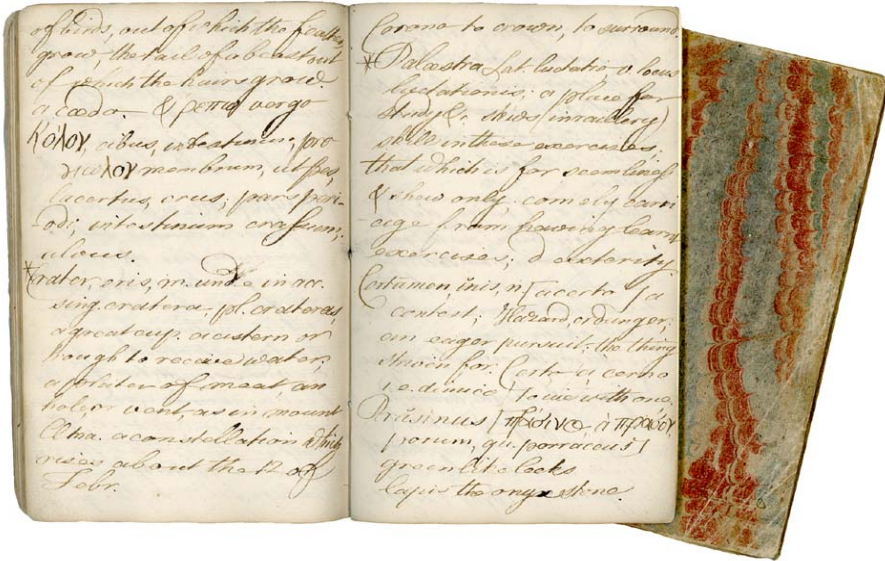 of birds, out of which the feathers
grow; the tail of a beast out
of which the hairs grow.
a cædo &
Κόλον, cibus, intestinum, pro
κωλον membrum, ut pes,
lacertus, crus; pars peri-
-odi; intestinum crassum,
Crater, eris, m. unde in acc.
sing. cratera; pl. crateras,
a great cup. a cistern or
trough to receive water;
a platter of meat, an
hole or vent, as in mount
Etna. a constellation which
rises about the 12 of
Febr.
Corono to crown, to surround.
* Palæstra Lat. luctatio, & locus
luctationis; a place for
study &
skill in these exercises;
that which is for seemliness
& shew only. comely carri
age from having learnt
exercises; dexterity.
Certamen, inis, n [a certo] a
contest; Hazard, or danger;
an eager pursuit; the thing
striven for. Certo a cerno
i.e. dimico to vie with one.
Prăsinus [πράσινο- à πράσον,
porrum, qu. porraceus]
green like leeks
lapis the onyx stone.